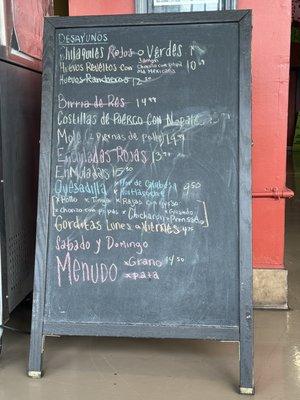 DESAYUNOS
Chilaquiles Rojos o Verdes
Huevos Revueltos con Jamon
Chorizo con papa
ala Mexicana 10
Huevos Rancheros 12.50
Birria de Res 14.99
Costillas de Puerco con Nopales
Mole (2 piernas de pollo) 14.99
Enchiladas Rojas 13.99
Enmoladas 15.50
Quesadilla x Flor de Calabaza 9.50
x Huitlacoche
x Pollo x Tinga x Rajas con queso
x Chorizo con papas x Chicharron Prensado
Gorditas Lunes a Viernes
Sabado y Domingo
Menudo x Grano 14.50
x pata